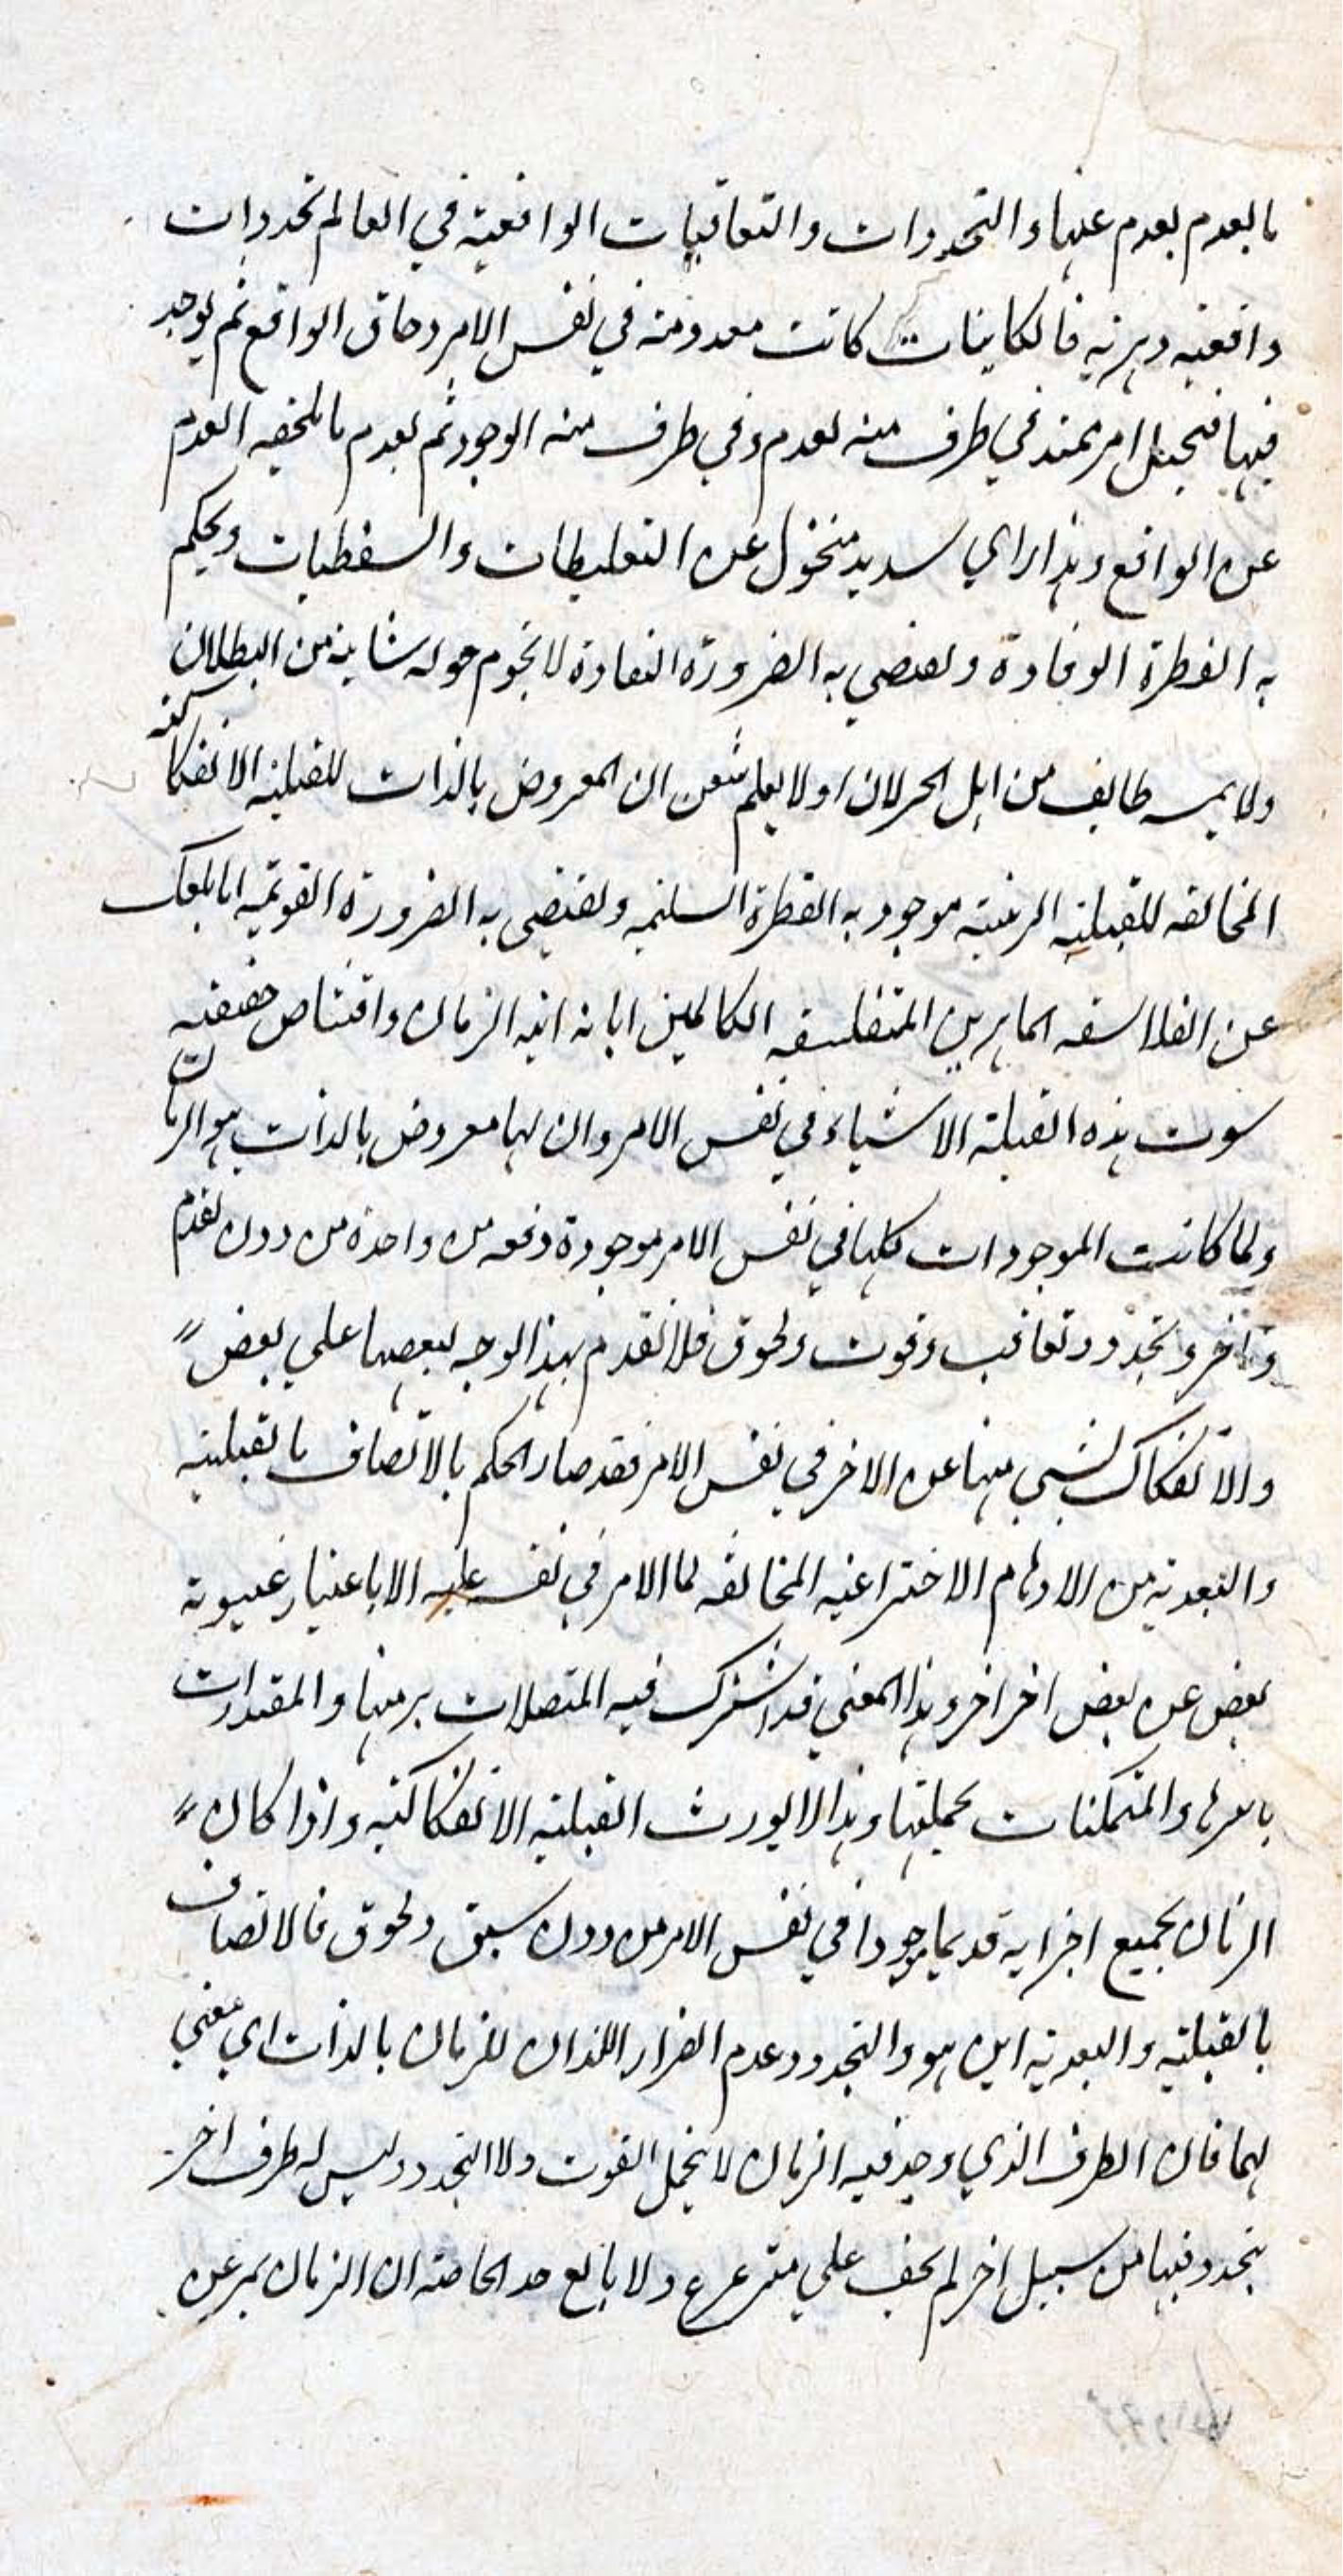 ما بعدم بعدم عنها و التجددات و التعاقبات الواقعية في العالم تجددات
واقعيه دهريه فالكاينات كانت معدومة في نفس الامر و حاق الواقع ثم يوجد
فيها فيحصل امر ممتد في طرف منه لعدم و في طرف منه الوجود ثم بعدم ما يلحقه العدم
عن الواقع و هذا راي سديد منخول عن التغليطات و السفسطيات و يحكم
به الفطرة الوقادة و يقضي به الضرورة النقادة لا يحوم حوله شايبة من البطلان
و لا يمسه طايف من اهل الخزلان او لا يعلم ان المعروض بالذات للقبلية الانفكاكية
المخالفه للقبلية الرتبية موجود به الفطرة السليمه و يقتضي به الضرورة القويمه اما بلغك
عن الفلاسفه الماهرين المتفلسفه الكاملين ابانة انية الزمان و اقتناص حقيقته
ثبوت هذه القبلية الاشياء في نفس الامر و ان لها معروض بالذات هو الزمان
و لما كانت الموجودات كلها في نفس الامر موجودة دفعه واحدة من دون تقدم
و تاخر و تجدد و تعاقب و فوت و لحوق فلا تقدم بهذا الوجه لبعضها علي بعض
و الا نفكاك لشي منها عن الاخر في نفس الامر فقد صار الحكم بالاتصاف بالقبلية
و البعدية من الاوهام الاختراعيه المخالفه لما الامر في نفسه عليه الا باعتبار غيبوبة
بعض عن بعض اخر و هذا المعني قد اشترك فيه المتصلات برمتها و المقدارات
باسرها و المتمكنات بجملتها و هذا لا يورث القبلية الانفكاكية و اذا كان
الزمان بجميع اجزايه قديما موجودا في نفس الامر من دون سبق و لحوق فالاتصاف
بالقبلية و البعدية اين هو و التجدد و عدم القرار اللذان للزمان بالذات اي معني
لهما فان الظرف الذي وجد فيه الزمان لا يحتمل الفوت و لا التجدد و ليس له ظرف اخر
يتجدد فيها من سبيل اخر لم يخف علي مترعرع و لا بالغ حد الخاصة ان الزمان يمر عن